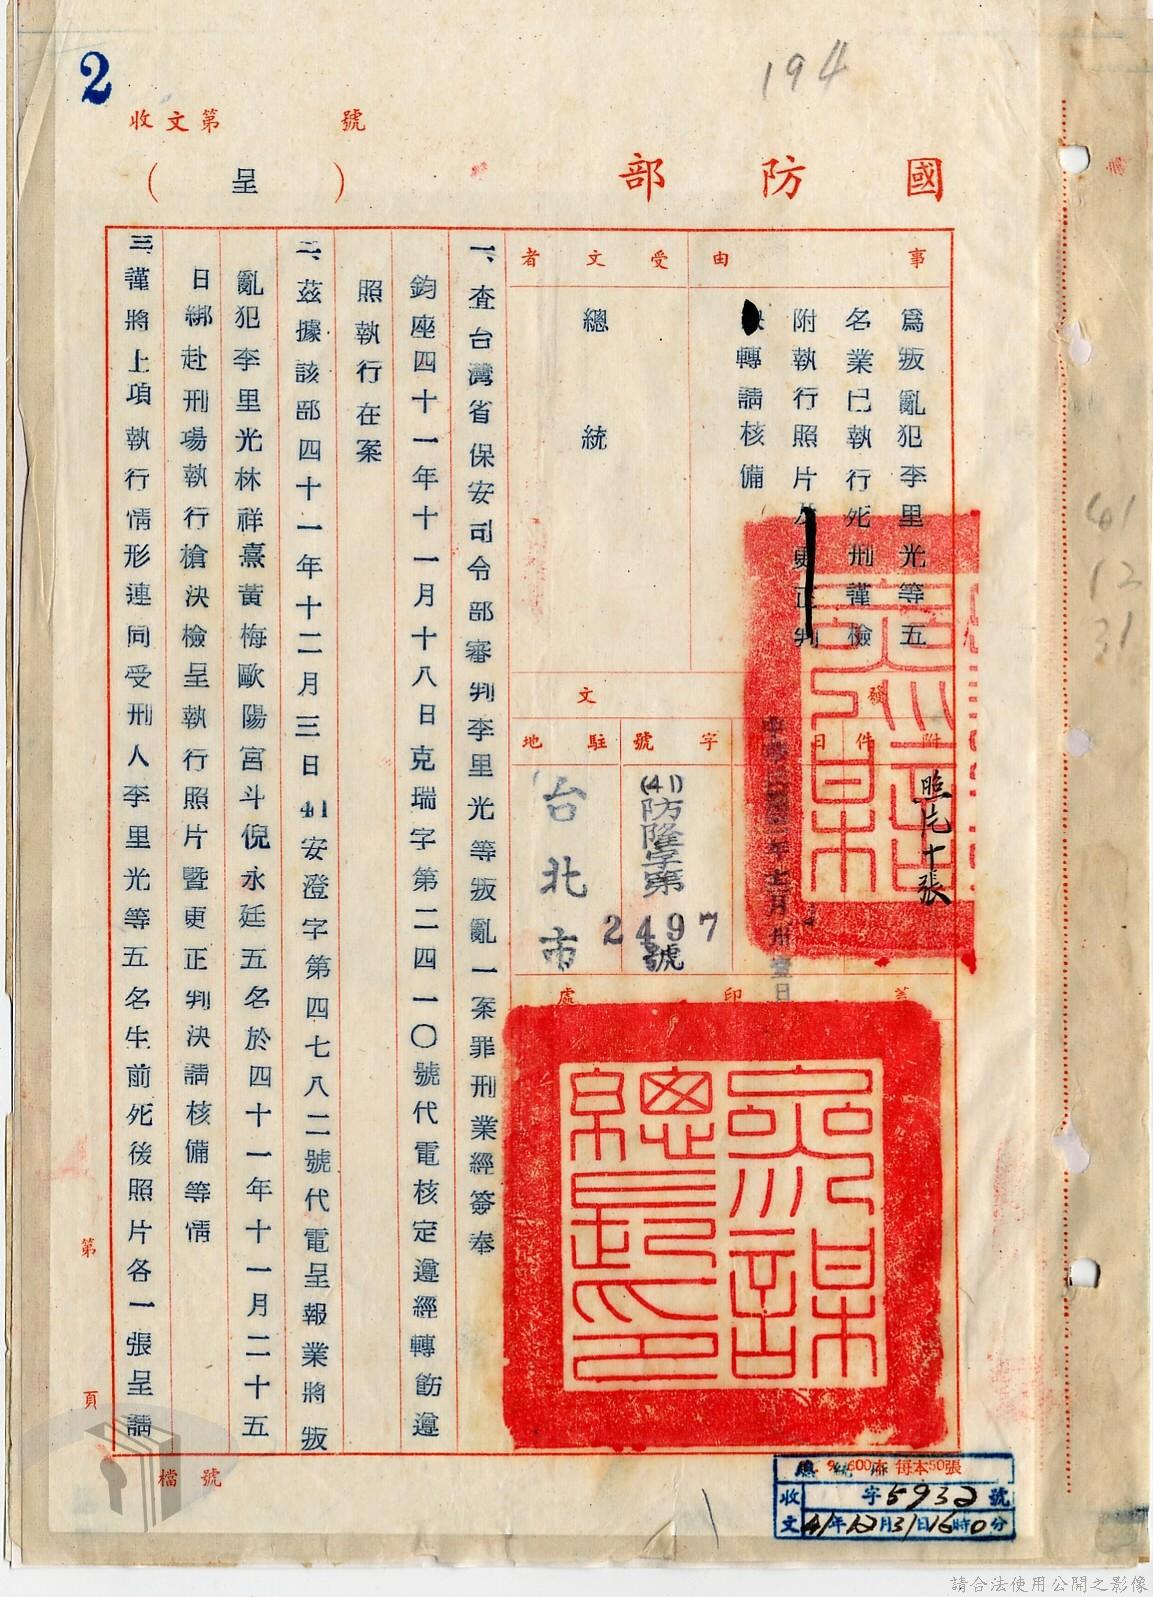 2
194
收文第 號
國防部
(呈)
事由
為叛亂犯李里光等五
名業已執行死刑謹檢
附執行照片及更正判
轉請核備
受文者
總統
發文
附件
照片十張
日
中華民國四十一年十二月卅壹日
字號
(41)防隆字第
2497
號
駐地
台北市
蓋印處
參謀總長印
一、查台灣省保安司令部審判李里光等叛亂一案罪刑業經簽奉
鈞座四十一年十一月十八日克瑞字第二四一〇號代電核定遵經轉飭遵
照執行在案
二、茲據該部四十一年十二月三日41安澄字第四七八二號代電呈報業將叛
亂犯李里光林祥熹黃梅歐陽宮斗倪永廷五名於四十一年十一月二十五
日綁赴刑場執行槍決檢呈執行照片暨更正判決請核備等情
三、謹將上項執行情形連同受刑人李里光等五名生前死後照片各一張呈請
第 頁
檔號
600本 每本50張
收文 字5932號
41年12月31日16時0分
41
12
31
請合法使用公開之影像